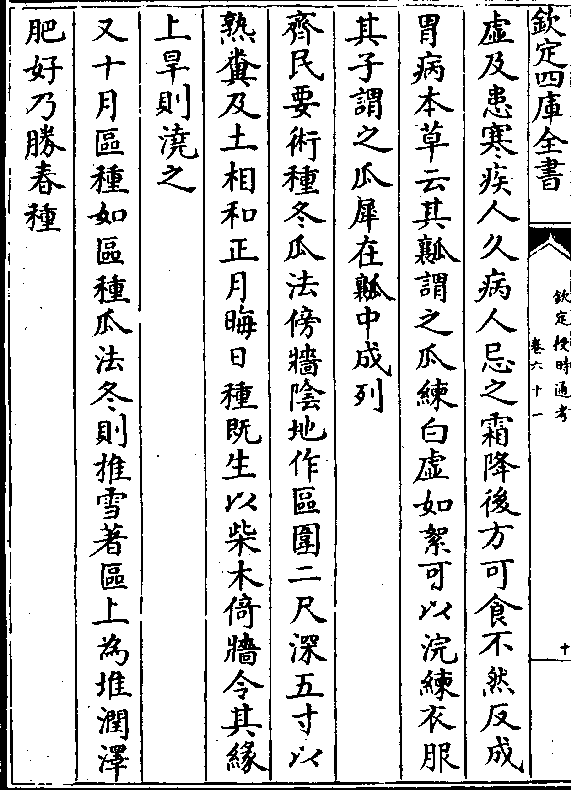 欽定四庫全書
欽定授時通考
卷六十一
十
虛及患寒疾人久病人忌之霜降後方可食不然反成
胃病本草云其瓤謂之瓜練白虛如絮可以浣練衣服
其子謂之瓜犀在瓤中成列
齊民要術種冬瓜法傍牆陰地作區圍二尺深五寸以
熟糞及土相和正月晦日種既生以柴木倚牆令其緣
上旱則澆之
又十月區種如區種瓜法冬則推雪著區上為堆潤澤
肥好乃勝春種